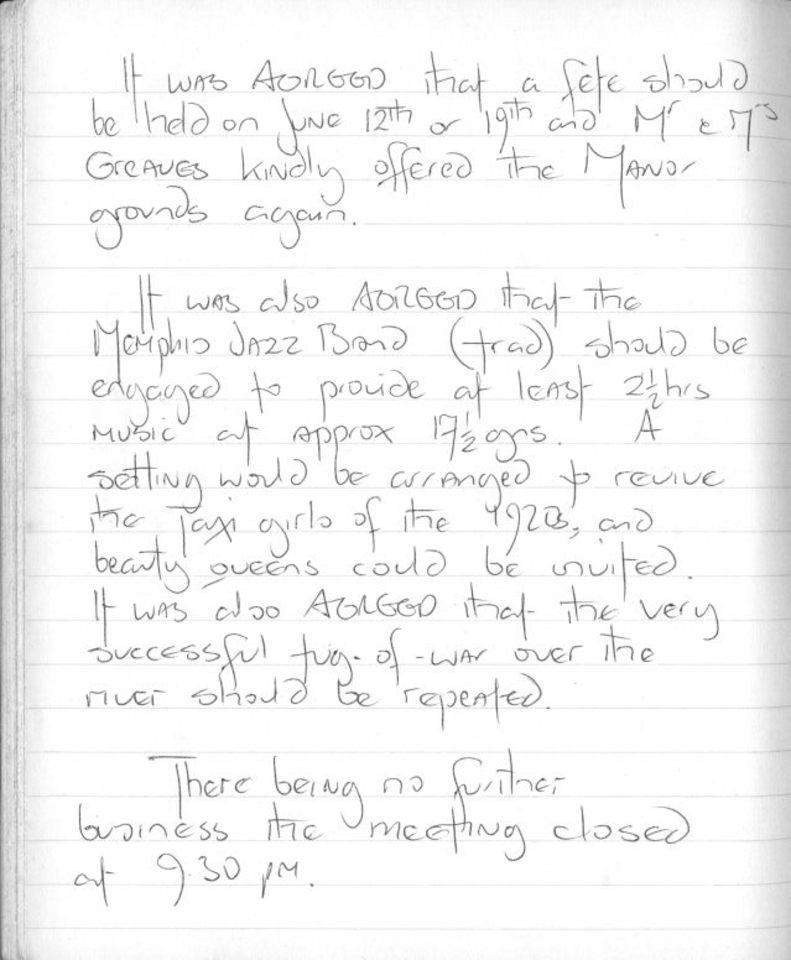 It was AGREED that a fete should
be held on June 12th or 19th and Mr & Mrs
Greaves kindly offered the Manor
grounds again.
It was also AGREED that the
Memphis Jazz Band (trad) should be
engaged to provide at least 2½ hrs
music at approx 17½ gns. A
setting would be arranged to revive
the Taxi girls of the 1920s, and
beauty queens could be invited.
It was also AGREED that the very
successful tug-of-war over the
river should be repeated.
There being no further
business the meeting closed
at 9.30 pm.